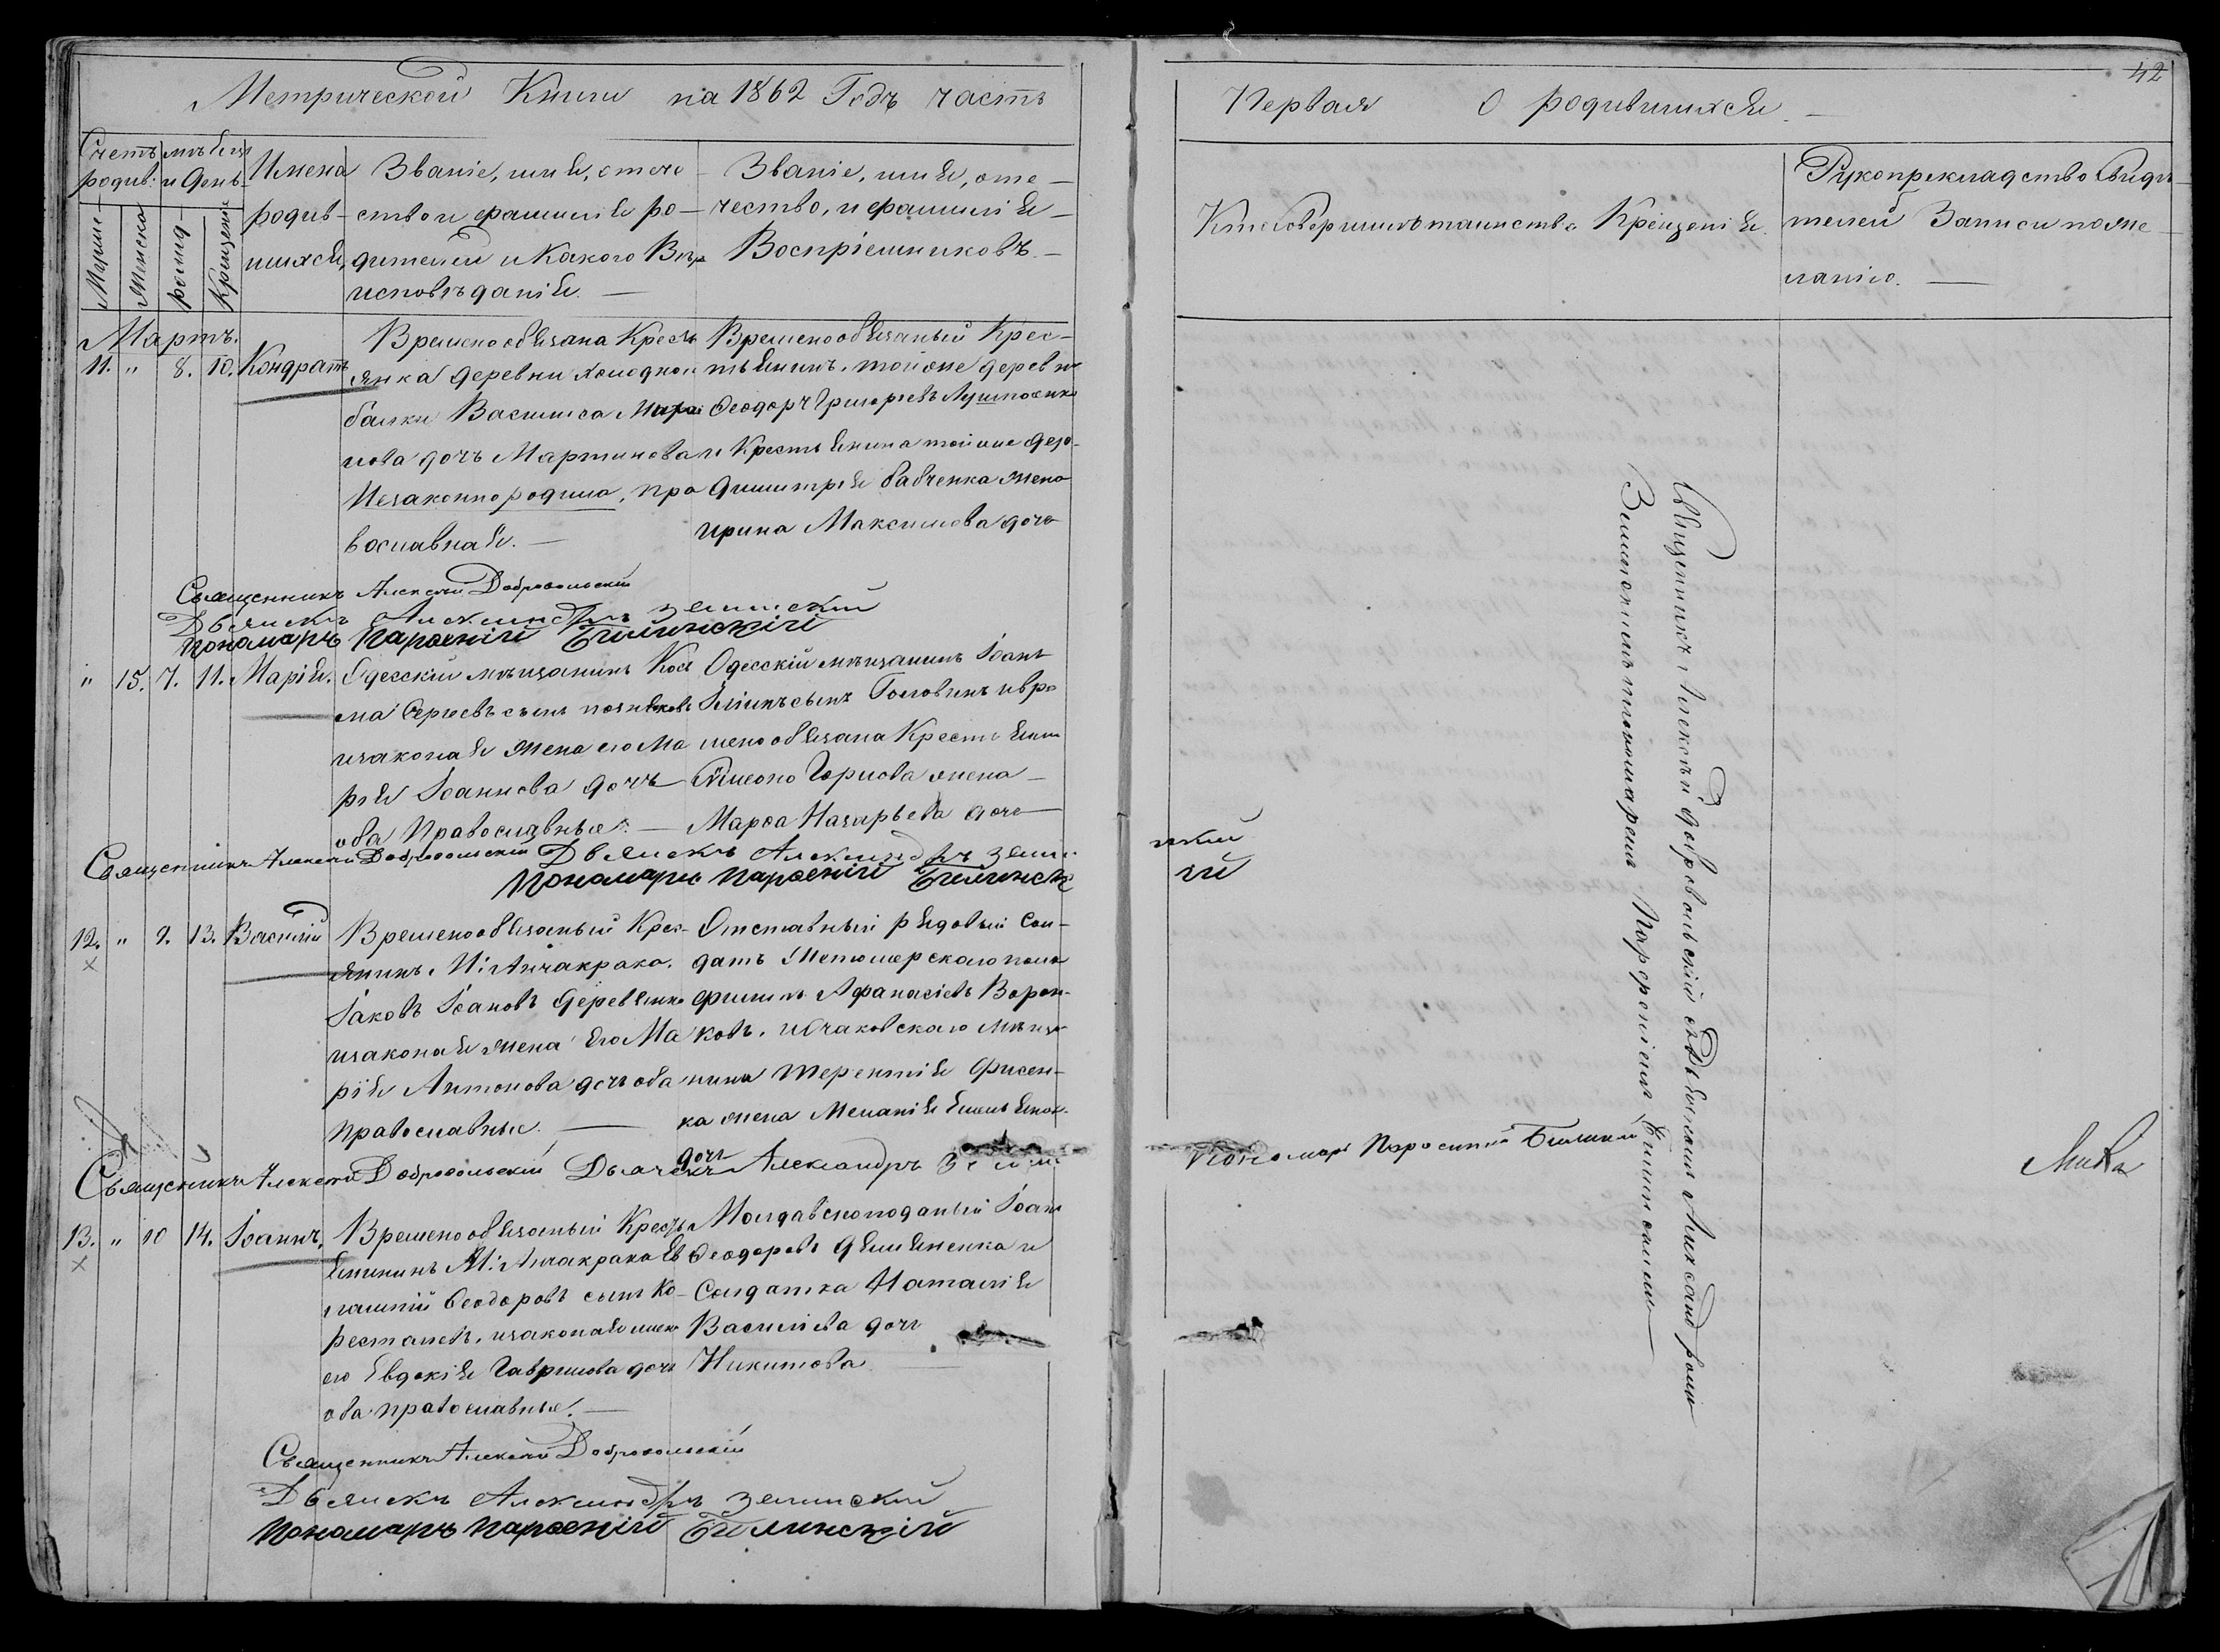 42
Метрической Книги на 1862 Годъ часть
Первая О родившихся.
Счетъ родив:
мѣсяц и День
Имена родившихся,
Званіе, имя, отечество и фамилія родителей и Какого Вѣр исповѣданія. —
Званіе, имя, отечество, и фамилія Воспріемниковъ. —
Кто совершилъ таинство Крещенія.
Рукоприкладство Свидѣтелей Записи по желанію. —
Мужс
Женска
рожд
Крещение
Мартъ.
11. " 8. 10. Кондратъ
Временообязана Кресть
янка деревни холодной
балки Василиса
нова дочь Мартинова
Незаконнородила, пра
вославная. —
Временообязаный Крес-
тьянинъ, тойже деревни
Ѳеодоръ Григорьевъ
и Крестьянина тойже дерев-
Димитрія бабченка жена
ирина Максимова дочь
Священникъ Алексѣй Добровольскій
Дьячекъ Александръ зелинский
Пономарь Парѳеній Билинскій
" 15. 7. 11. Марія.
Одесскій мѣщанинъ Кос
ма Сергеевъ сынъ
изаконая жена его Ма
рія Іоаннова дочь
оба Православные. —
Одесскій мѣщанинъ Іоанъ
Іліинъ сынъ Головинъ и вре
менообязана Крестьянин
Симеона Горлова жена —
Марѳа Назарьева дочь
Священникъ Алексѣй Добровольскій Дьячекъ Александръ зелин
ский
Пономарь Парѳеній Билинск
ій
12. " 9. 13. Василій
Временообязаный Крес-
янинъ М: Анчакрака.
Іаковъ Іоановъ Деревянко
изаконая жена Его Ма
рія Антонова дочь оба
православные. —
Отставный рядовый Сол-
датъ Житомерскаго полка
филипъ Афанасіевъ Ворон-
ковъ, и Очаковскаго мѣща
нина терентія Фисен-
ка жена Меланія Емельянов-
дочь
Священникъ Алексѣй Добровольскій Дьячекъ Александръ Зелин
Пономарь Парѳеній Билински
13. " 10 14. Іоаннъ,
Временообязаный Кресть
янинъ М: Анчакрака Ев
лампій Ѳеодоровъ сынъ Ко-
рестылевъ, изаконая жена
его Евдокія Гаврилова дочь
оба православные. —
Молдавскоподаный Іоанъ
Ѳеодоровъ Демяненка и
Солдатка Наталія
Василіева дочь
Никитова
Священникъ Алексѣй Добровольскій
Дьячекъ Александръ зелинский
Пономарь Парѳеній Билинскій
Священникъ Алексѣй Добровольскій съ Дьячкомъ Александромъ
Зелинскимъ и пономаремъ Парфеніемъ Билинскимъ —